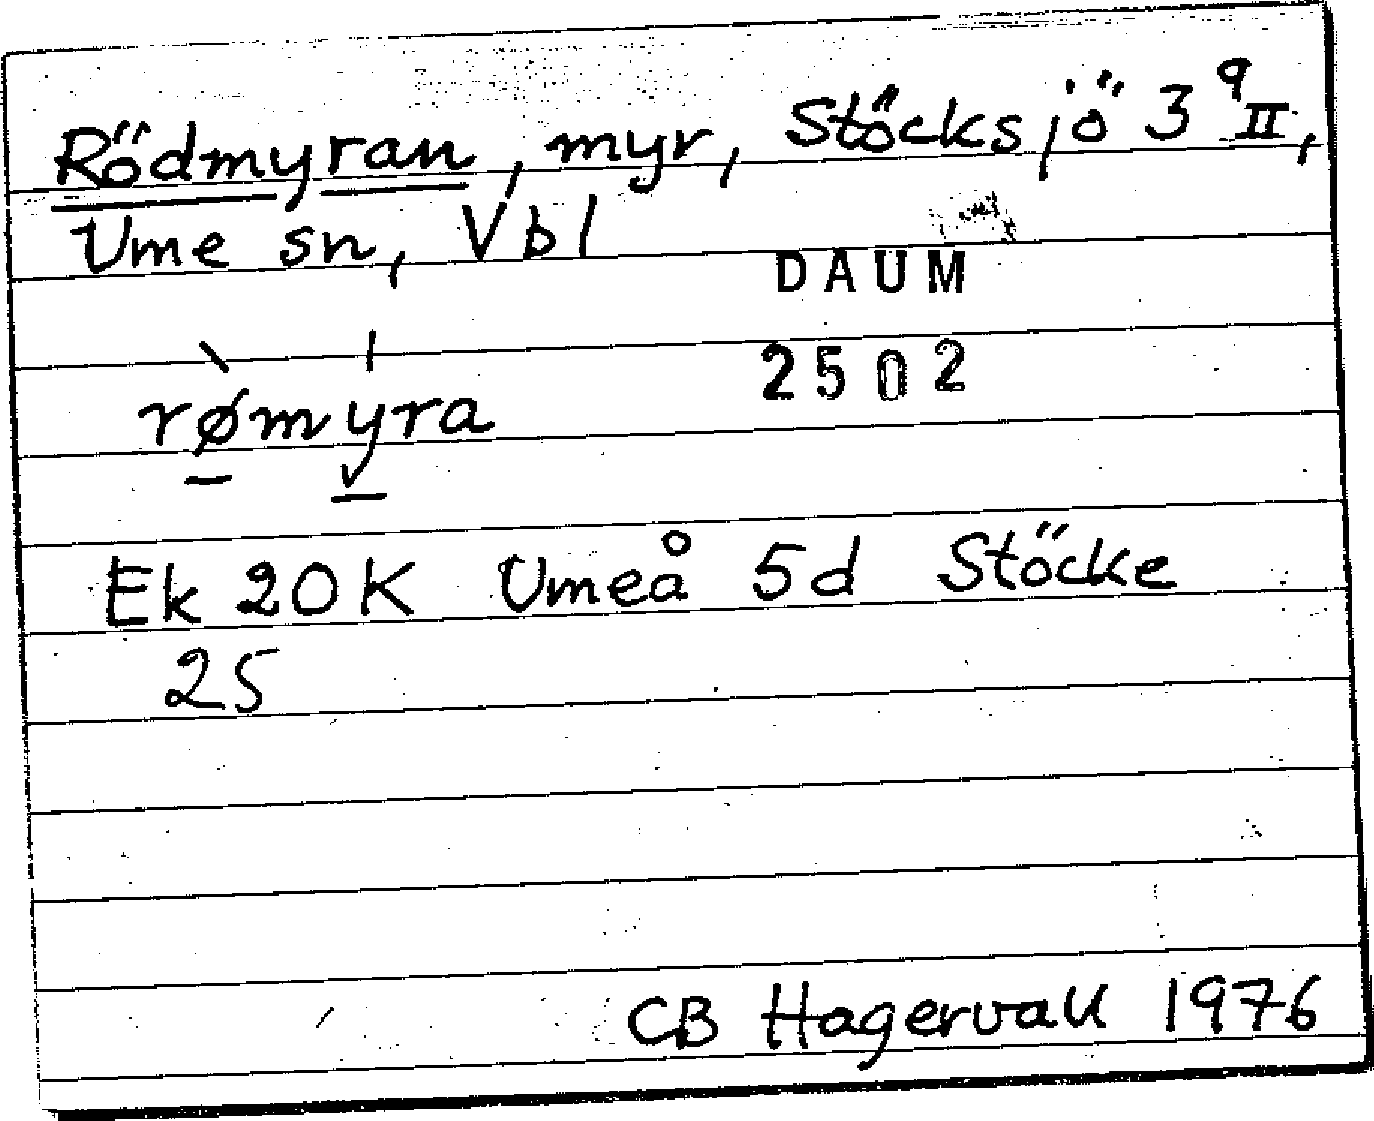 Rödmyran, myr, Stöcksjö 3 q II,
Ume sn, Vbl
DAUM
2502
rømyra
Ek 20K Umeå 5d Stöcke
25
CB Hagervall 1976